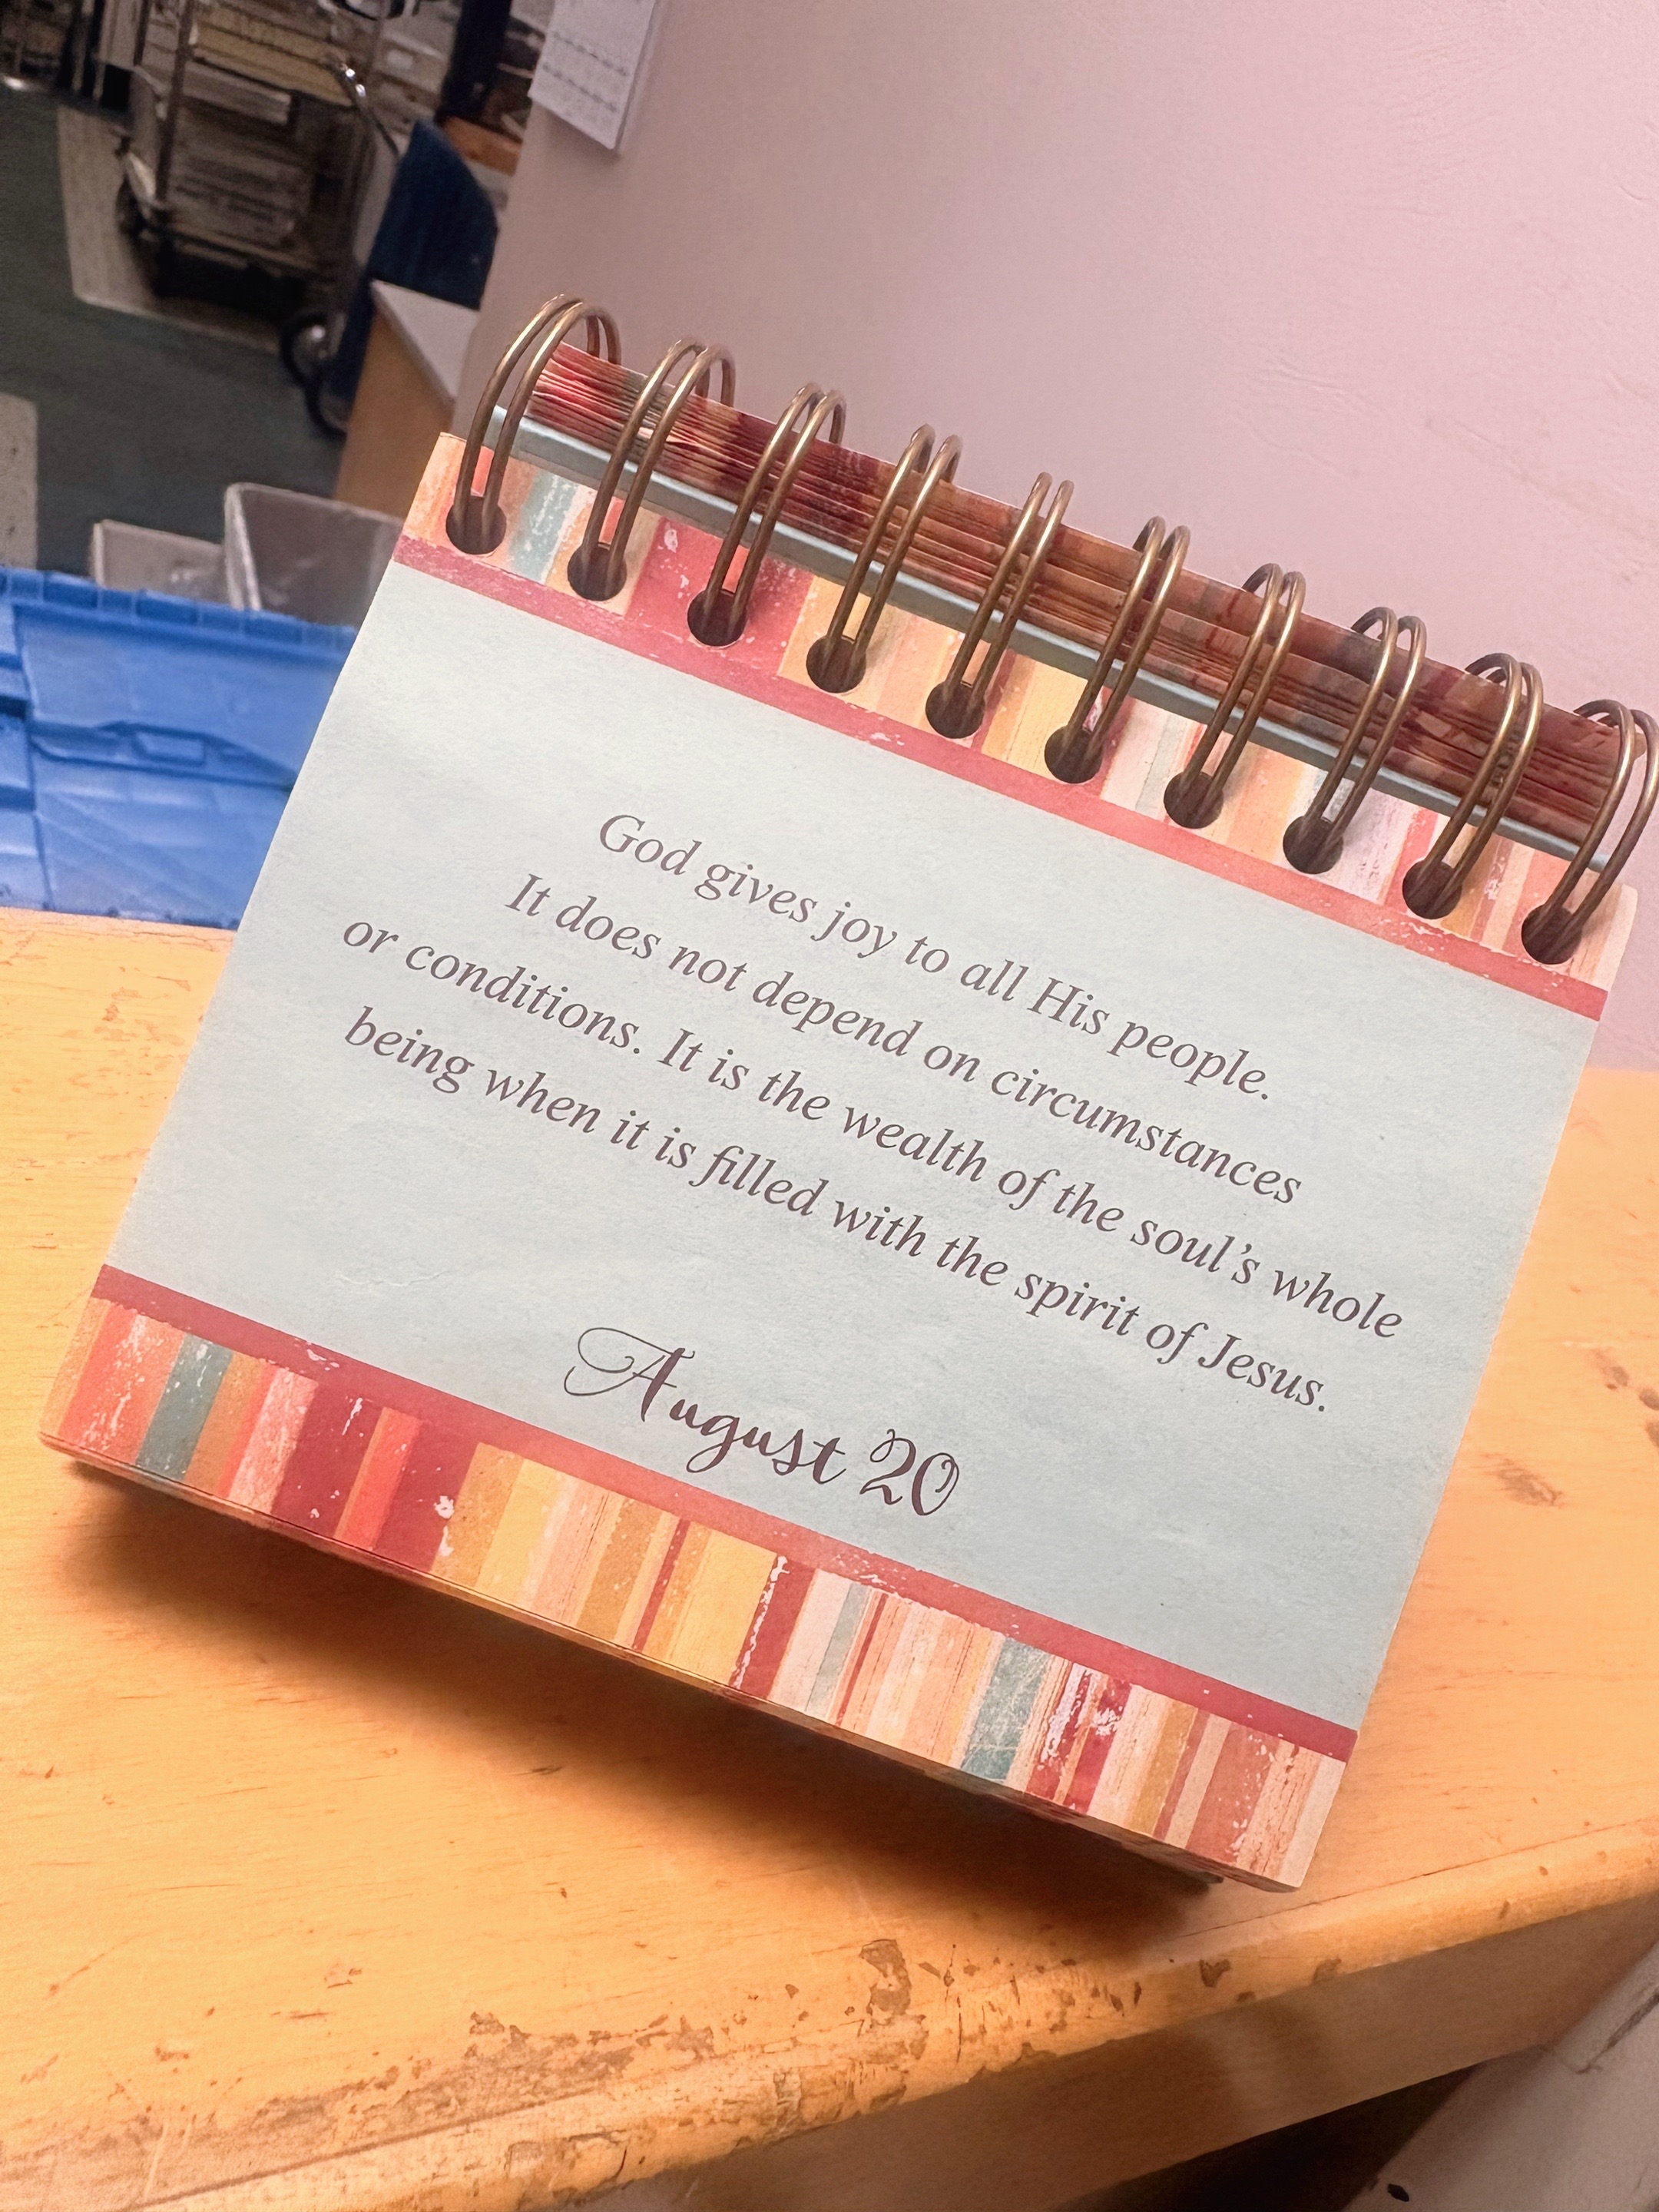 God gives joy to all His people.
It does not depend on circumstances
or conditions. It is the wealth of the soul’s whole
being when it is filled with the spirit of Jesus.
August 20